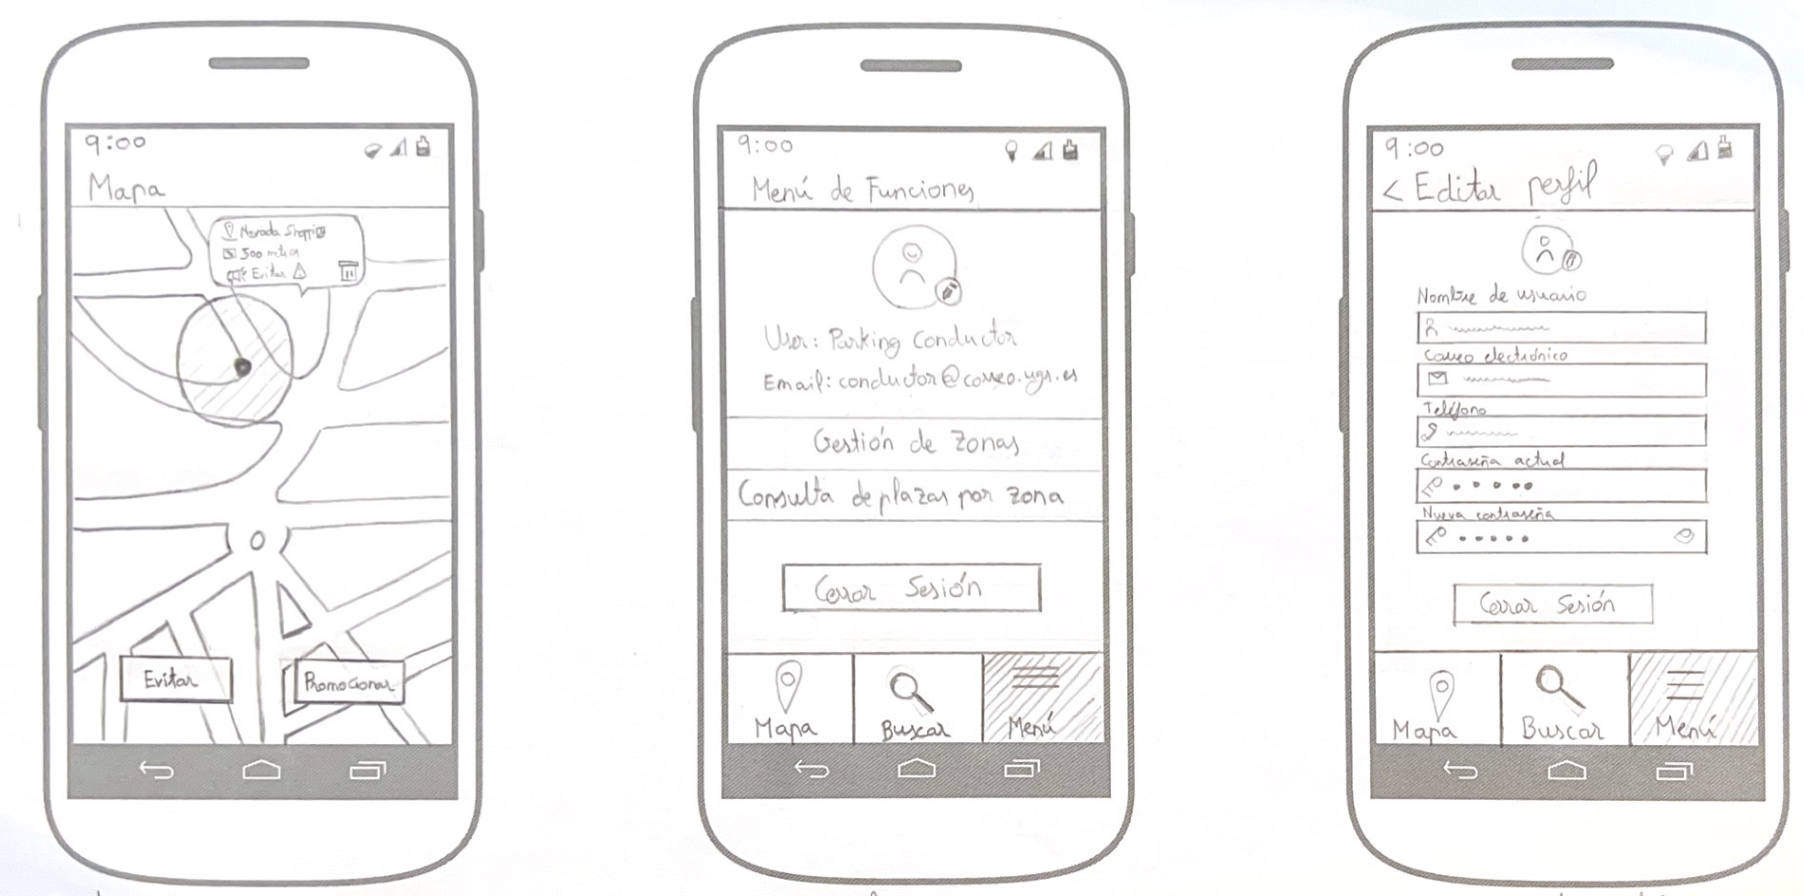 9:00
Mapa
Nevada Shopping
500 metros
Evitar
Evitar
Promocionar
9:00
Menú de Funciones
User: Parking Conductor
Email: conductor@correo.ugr.es
Gestión de Zonas
Consulta de plazas por zona
Cerrar Sesión
Mapa
Buscar
Menú
9:00
< Editar perfil
Nombre de usuario
Correo electrónico
Teléfono
Contraseña actual
Nueva contraseña
Cerrar Sesión
Mapa
Buscar
Menú